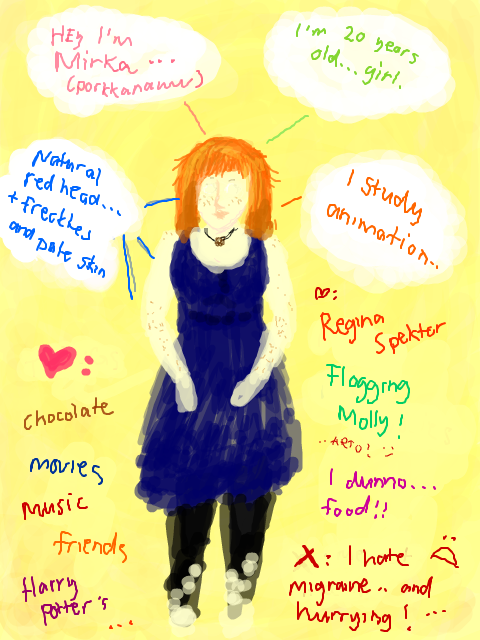 HEy I'm
Mirka ...
(porkkanamu)
I'm 20 years
old... girl.
Natural
red head...
+ freckles
and pale skin
I Study
animation..
♥:
Regina
Spektor
Flogging
Molly!
I dunno...
food!!
♥:
chocolate
movies
music
friends
Harry
Potter's
...
X: I hate
migraine.. and
hurrying! ...